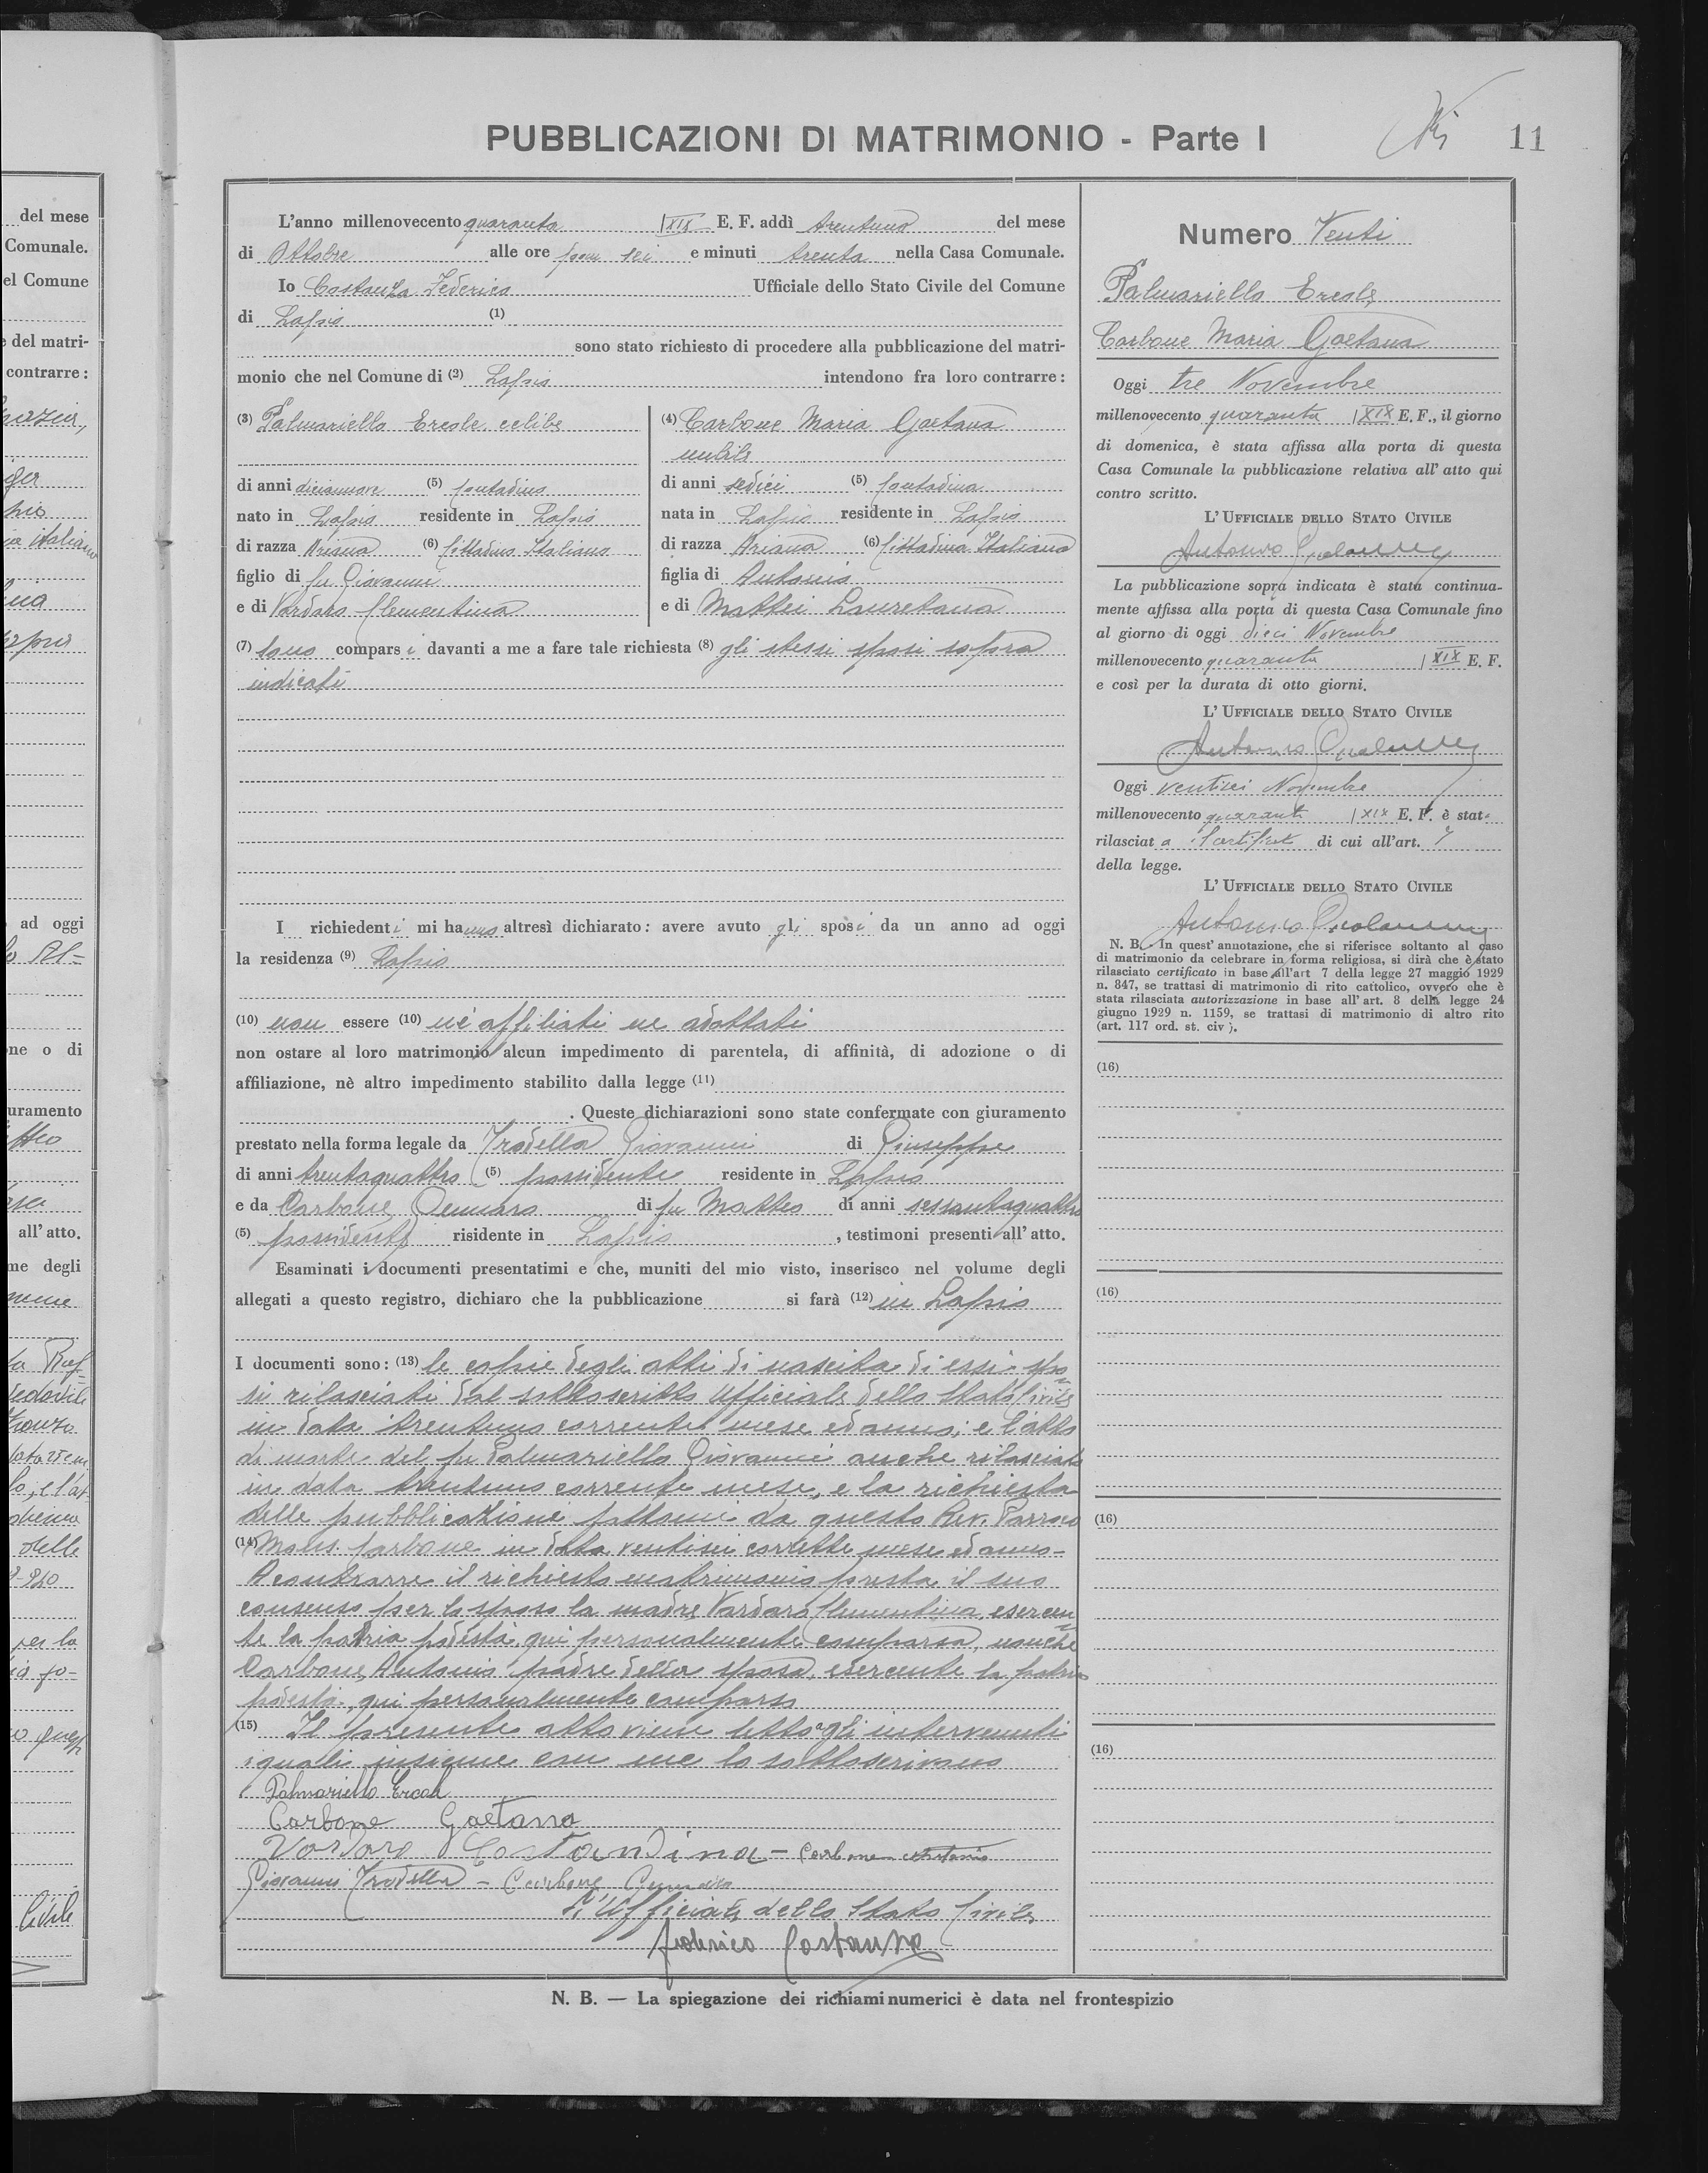 PUBBLICAZIONI DI MATRIMONIO - Parte I
11
L'anno millenovecento quaranta XIX E. F. addì trentuno del mese
di Ottobre alle ore pom sei e minuti trenta nella Casa Comunale.
Io Costanza Federico Ufficiale dello Stato Civile del Comune
di Lapio (1)
sono stato richiesto di procedere alla pubblicazione del matri-
monio che nel Comune di (2) Lapio intendono fra loro contrarre:
(3) Palmariello Ercole celibe
di anni diciannove (5) contadino
nato in Lapio residente in Lapio
di razza Ariana (6) Cittadino Italiano
figlio di fu Giovanni
e di Vardaro Clementina
(4) Carbone Maria Gaetana
nubile
di anni sedici (5) contadina
nata in Lapio residente in Lapio
di razza Ariana (6) Cittadina Italiana
figlia di Antonio
e di Mattei Lauretana
(7) Sono compars i davanti a me a fare tale richiesta (8) gli stessi sposi sopra
indicati
I richiedenti mi hanno altresì dichiarato: avere avuto gli sposi da un anno ad oggi
la residenza (9) Lapio
(10) non essere (10) nè affiliati ne adottati
non ostare al loro matrimonio alcun impedimento di parentela, di affinità, di adozione o di
affiliazione, nè altro impedimento stabilito dalla legge (11)
. Queste dichiarazioni sono state confermate con giuramento
prestato nella forma legale da Trodella Giovanni di Giuseppe
di anni trentaquattro (5) possidente residente in Lapio
e da Carbone Gennaro di fu Matteo di anni sessantaquattro
(5) possidente risidente in Lapio , testimoni presenti all' atto.
Esaminati i documenti presentatimi e che, muniti del mio visto, inserisco nel volume degli
allegati a questo registro, dichiaro che la pubblicazione si farà (12) in Lapio
I documenti sono: (13) le copie degli atti di nascita di essi spo
si rilasciati dal sottoscritto Ufficiale dello Stato Civile
in data trentuno corrente mese ed anno; e l'atto
di morte del fu Palmariello Giovanni anche rilasciato
in data trentuno corrente mese, e la richiesta
delle pubblicazioni fattomi da questo Rev. Parroco
(14) Mons. Carbone in data ventisei corrette mese ed anno-
A contrarre il richiesto matrimonio presta il suo
consenso per lo sposo la madre Vardaro Clementina, esercen
te la patria podestà qui personalmente comparsa, nonchè
Carbone Antonio padre della sposa, esercente la patria
podestà, qui personalmente comparso
(15) Il presente atto viene letto agli intervenuti
i quali insieme con me lo sottoscrivono
Palmariello Ercole
Carbone Gaetana
Vardaro Costandina - Carbone Antonio
Giovanni Trodella - Carbone
L'Ufficiale dello Stato Civile
Federico Costanza
Numero Venti
Palmariello Ercole
Carbone Maria Gaetana
Oggi tre Novembre
millenovecento quaranta XIX E. F., il giorno
di domenica, è stata affissa alla porta di questa
Casa Comunale la pubblicazione relativa all' atto qui
contro scritto.
L' UFFICIALE DELLO STATO CIVILE
Antonio
La pubblicazione sopra indicata è stata continua-
mente affissa alla porta di questa Casa Comunale fino
al giorno di oggi dieci Novembre
millenovecento quaranta XIX E. F.
e così per la durata di otto giorni.
L' UFFICIALE DELLO STATO CIVILE
Antonio
Oggi ventisei Novembre
millenovecento quaranta XIX E. F. è stat.
rilasciat o Certificato di cui all'art. 7
della legge.
L' UFFICIALE DELLO STATO CIVILE
Antonio
N. B. In quest' annotazione, che si riferisce soltanto al caso
di matrimonio da celebrare in forma religiosa, si dirà che è stato
rilasciato certificato in base all'art 7 della legge 27 maggio 1929
n. 847, se trattasi di matrimonio di rito cattolico, ovvero che è
stata rilasciata autorizzazione in base all' art. 8 della legge 24
giugno 1929 n. 1159, se trattasi di matrimonio di altro rito
(art. 117 ord. st. civ ).
(16)
(16)
(16)
(16)
N. B. — La spiegazione dei richiami numerici è data nel frontespizio
del mese
Comunale.
el Comune
e del matri-
contrarre:
ad oggi
ne o di
uramento
all' atto.
me degli
delle
Civile